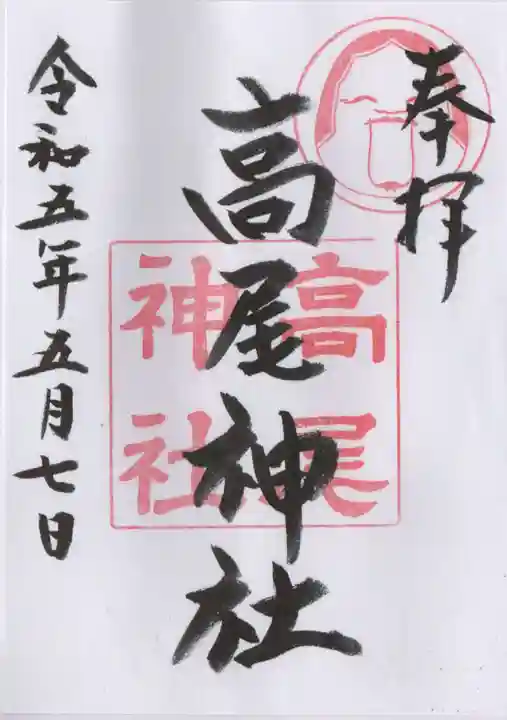 奉拝
高尾神社
高尾
神社
令和五年五月七日